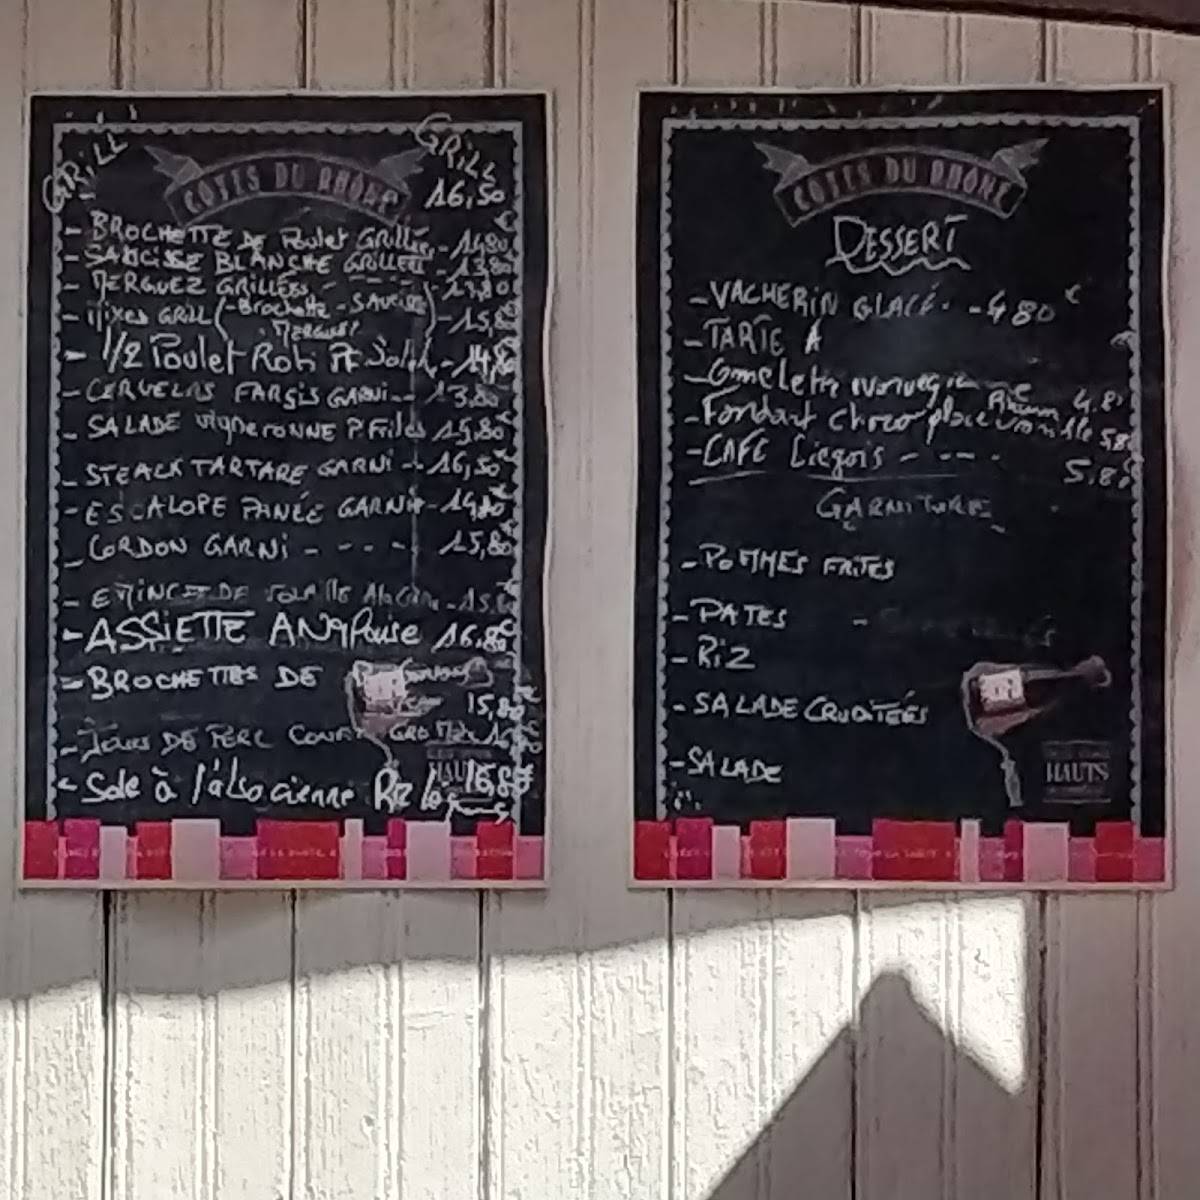 GRILL
GRILL
CÔTES DU RHÔNE
16,50
- BROCHETTE DE Poulet GRILLÉE - 14,80
- SAUCISSE BLANCHE GRILLÉE - 13,80
- MERGUEZ GRILLÉES - - - - 13,80
- MIXED GRILL (- Brochette - SAUCISSE - 15,80
- MERGUEZ)
- 1/2 Poulet Roti - 14,80
- CERVELAS FARSIS GARNI - - 13,80
- SALADE VIGNERONNE P. Frites 15,80€
- STEACK TARTARE GARNI - - 16,50€
- ESCALOPE PANÉE GARNIE - 14,80
- CORDON GARNI - - - - 15,80€
- EMINCE DE VOLAILLE - 15,80
- ASSIETTE ANGLAISE 16,80€
- BROCHETTES DE
15,80€
- DE PERC
- Sole à l'alsacienne Riz 16,80€
HAUTS
CÔTES DU RHÔNE
DESSERT
- VACHERIN GLACÉ - - 4,80€
- TARTE A
- Omelette norvegienne 4.80
- Fondant choco 5,80
- CAFÉ Liegois - - - - 5,80€
GARNITURE
- POMMES FRITES
- PATES -
- RIZ
- SALADE CRUDITÉES
- SALADE
HAUTS